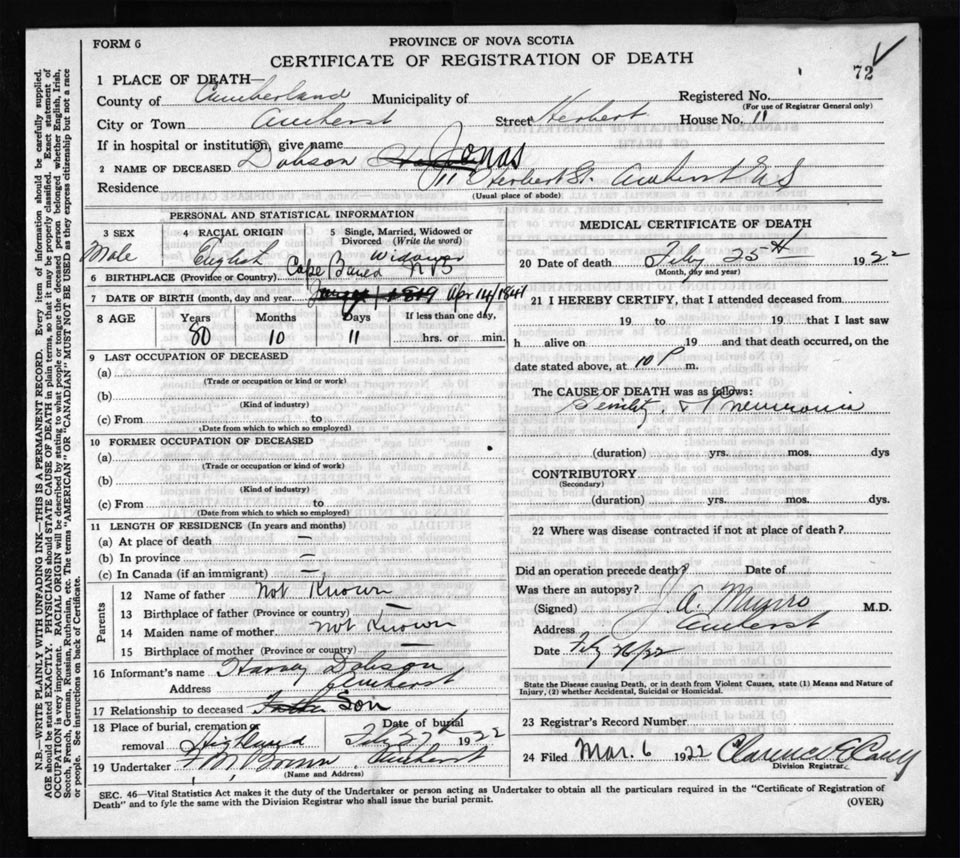 FORM 6
PROVINCE OF NOVA SCOTIA
CERTIFICATE OF REGISTRATION OF DEATH
72
1 PLACE OF DEATH—
County of Cumberland Municipality of Registered No.
(For use of Registrar General only)
City or Town Amherst Street Herbert House No. 11
If in hospital or institution, give name
2 NAME OF DECEASED Dobson Jonas
Residence 11 Herbert St. Amherst N S
(Usual place of abode)
PERSONAL AND STATISTICAL INFORMATION
3 SEX
Male
4 RACIAL ORIGIN
English
5 Single, Married, Widowed or Divorced (Write the word)
Widower
6 BIRTHPLACE (Province or Country) Cape NB
7 DATE OF BIRTH (month, day and year) Apr 14/1841
8 AGE Years Months Days If less than one day,
80 10 11 hrs. or min.
9 LAST OCCUPATION OF DECEASED
(a)
(Trade or occupation or kind or work)
(b)
(Kind of industry)
(c) From to
(Date from which to which so employed)
10 FORMER OCCUPATION OF DECEASED
(a)
(Trade or occupation or kind of work)
(b)
(Kind of industry)
(c) From to
(Date from which to which so employed)
11 LENGTH OF RESIDENCE (In years and months)
(a) At place of death —
(b) In province —
(c) In Canada (if an immigrant) —
Parents
12 Name of father Not Known
13 Birthplace of father (Province or country) —
14 Maiden name of mother Not Known
15 Birthplace of mother (Province or country) —
16 Informant's name Harvey Dobson
Address Amherst
17 Relationship to deceased Son
18 Place of burial, cremation or removal Highland
Date of burial Feb 27th 1922
19 Undertaker Amherst
(Name and Address)
MEDICAL CERTIFICATE OF DEATH
20 Date of death Feby 25th 1922
(Month, day and year)
21 I HEREBY CERTIFY, that I attended deceased from
19 to 19 that I last saw
h alive on 19 and that death occurred, on the
date stated above, at 10 P m.
The CAUSE OF DEATH was as follows:
Senility & Pneumonia
(duration) yrs. mos. dys
CONTRIBUTORY
(Secondary)
(duration) yrs. mos. dys.
22 Where was disease contracted if not at place of death?
Did an operation precede death? Date of
Was there an autopsy?
(Signed) J. A. Munro M.D.
Address Amherst
Date Feby 26/22
State the Disease causing Death, or in death from Violent Causes, state (1) Means and Nature of
Injury, (2) whether Accidental, Suicidal or Homicidal.
23 Registrar's Record Number
24 Filed Mar. 6 1922 Clarence
Division Registrar.
SEC. 46—Vital Statistics Act makes it the duty of the Undertaker or person acting as Undertaker to obtain all the particulars required in the "Certificate of Registration of
Death" and to fyle the same with the Division Registrar who shall issue the burial permit.
(OVER)
N.B.—WRITE PLAINLY WITH UNFADING INK—THIS IS A PERMANENT RECORD. Every item of information should be carefully supplied.
AGE should be stated EXACTLY. PHYSICIANS should STATE CAUSE OF DEATH in plain terms, so that it may be properly classified. Exact statement of
OCCUPATION is very important. RACIAL ORIGIN will be described by stating to what people or tongue the deceased person belonged, whether English, Irish,
Scotch, French, German, Russian, Ruthenian, etc. The terms "AMERICAN" OR "CANADIAN" MUST NOT BE USED as they express citizenship but not a race
or people. See instructions on back of Certificate.